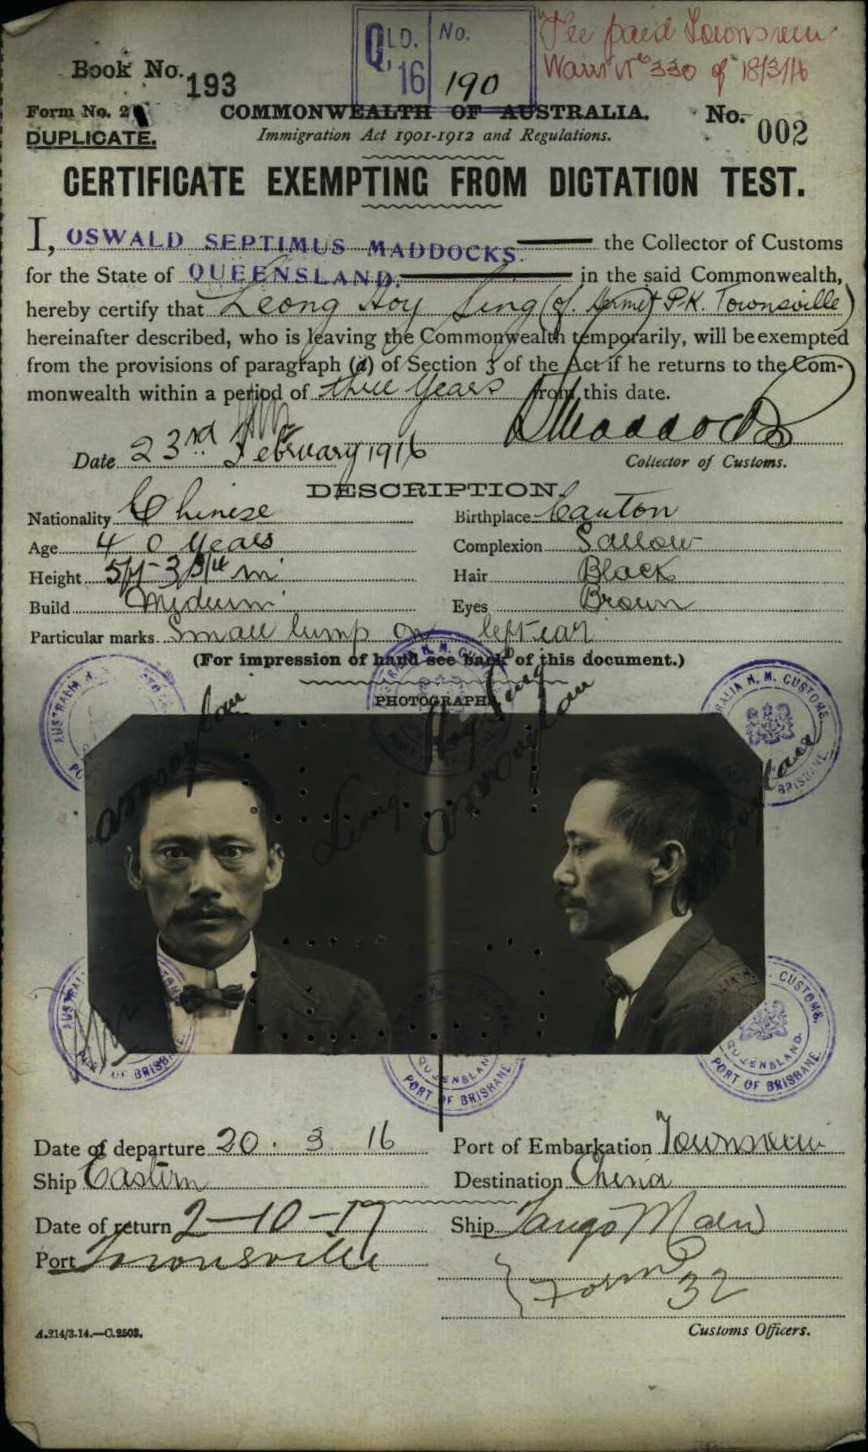 QLD. No.
'16 190
"Fee paid Townsville
Warrt No 330 of 18/3/16
Book No. 193
Form No. 21
COMMONWEALTH OF AUSTRALIA.
No. 002
DUPLICATE.
Immigration Act 1901-1912 and Regulations.
CERTIFICATE EXEMPTING FROM DICTATION TEST.
I, OSWALD SEPTIMUS MADDOCKS. the Collector of Customs
for the State of QUEENSLAND. in the said Commonwealth,
hereby certify that Leong Hoy Sing (of Hermit P.K. Townsville)
hereinafter described, who is leaving the Commonwealth temporarily, will be exempted
from the provisions of paragraph (a) of Section 3 of the Act if he returns to the Com-
monwealth within a period of three years from this date.
Date 23rd February 1916
Maddocks
Collector of Customs.
DESCRIPTION.
Nationality Chinese Birthplace Canton
Age 40 years Complexion Sallow
Height 5ft 3 3/4 in Hair Black
Build Medium Eyes Brown
Particular marks Small lump on left ear
(For impression of hand see back of this document.)
PHOTOGRAPHS
AUSTRALIA H. M. CUSTOMS.
QUEENSLAND.
PORT OF BRISBANE
Date of departure 20. 3 16 Port of Embarkation Townsville
Ship Eastern Destination China
Date of return 2-10-17 Ship Tango Maru
Port Townsville
Form 32
A.214/3.14.—C.2503.
Customs Officers.